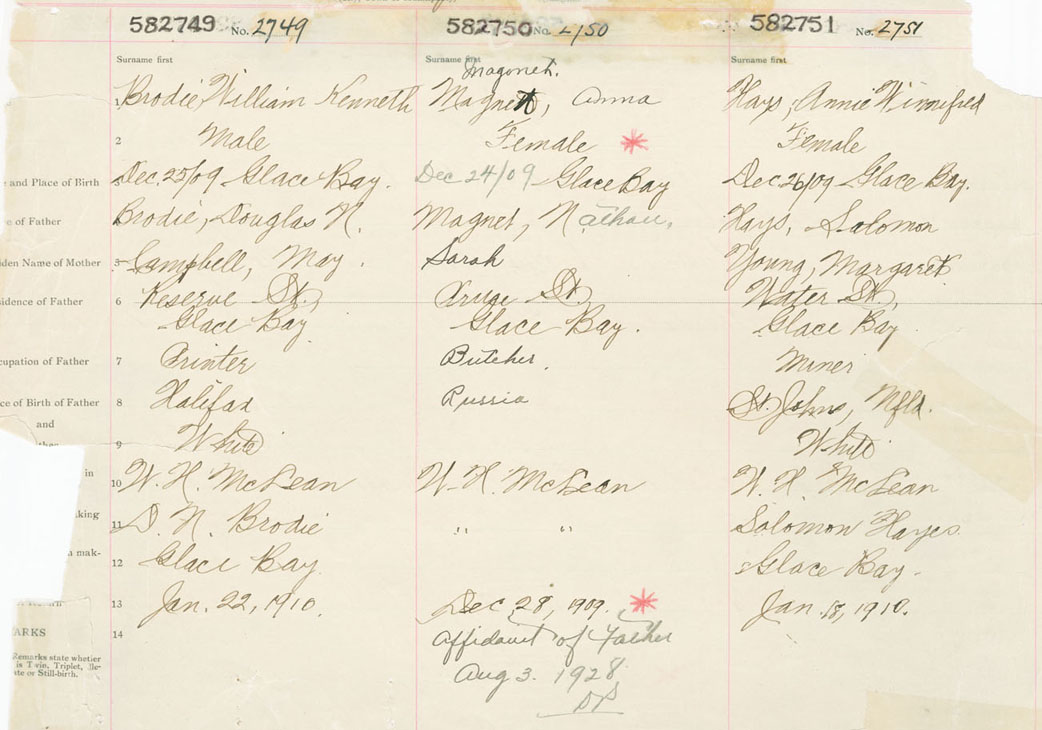 582749 No. 2749 582750 No. 2750 582751 No. 2751
Surname first Surname first Surname first
Magonet.
1 Brodie, William Kenneth Magnet, Anna Hays, Annie Winnifred
2 Male Female * Female
e and Place of Birth 3 Dec. 25/09 Glace Bay. Dec 24/09 Glace Bay Dec 26/09 Glace Bay.
e of Father Brodie, Douglas N. Magnet, Nathan, Hays, Solomon
iden Name of Mother 5 Campbell, May. Sarah Young, Margaret
sidence of Father 6 Reserve St, St, Water St,
Glace Bay Glace Bay. Glace Bay
cupation of Father 7 Printer Butcher. Miner
ce of Birth of Father 8 Halifax Russia St. Johns, Nfld.
and
9 White White
in
10 W. H. McLean W. H. McLean W. H. McLean
king
11 D. N. Brodie " " Solomon Hayes
mak-
12 Glace Bay. Glace Bay.
13 Jan. 22, 1910. Dec. 28, 1909. * Jan. 18, 1910.
ARKS
14 Affidavit of Father
Remarks state whether
is Twin, Triplet, Ille-
te or Still-birth.
Aug 3. 1928